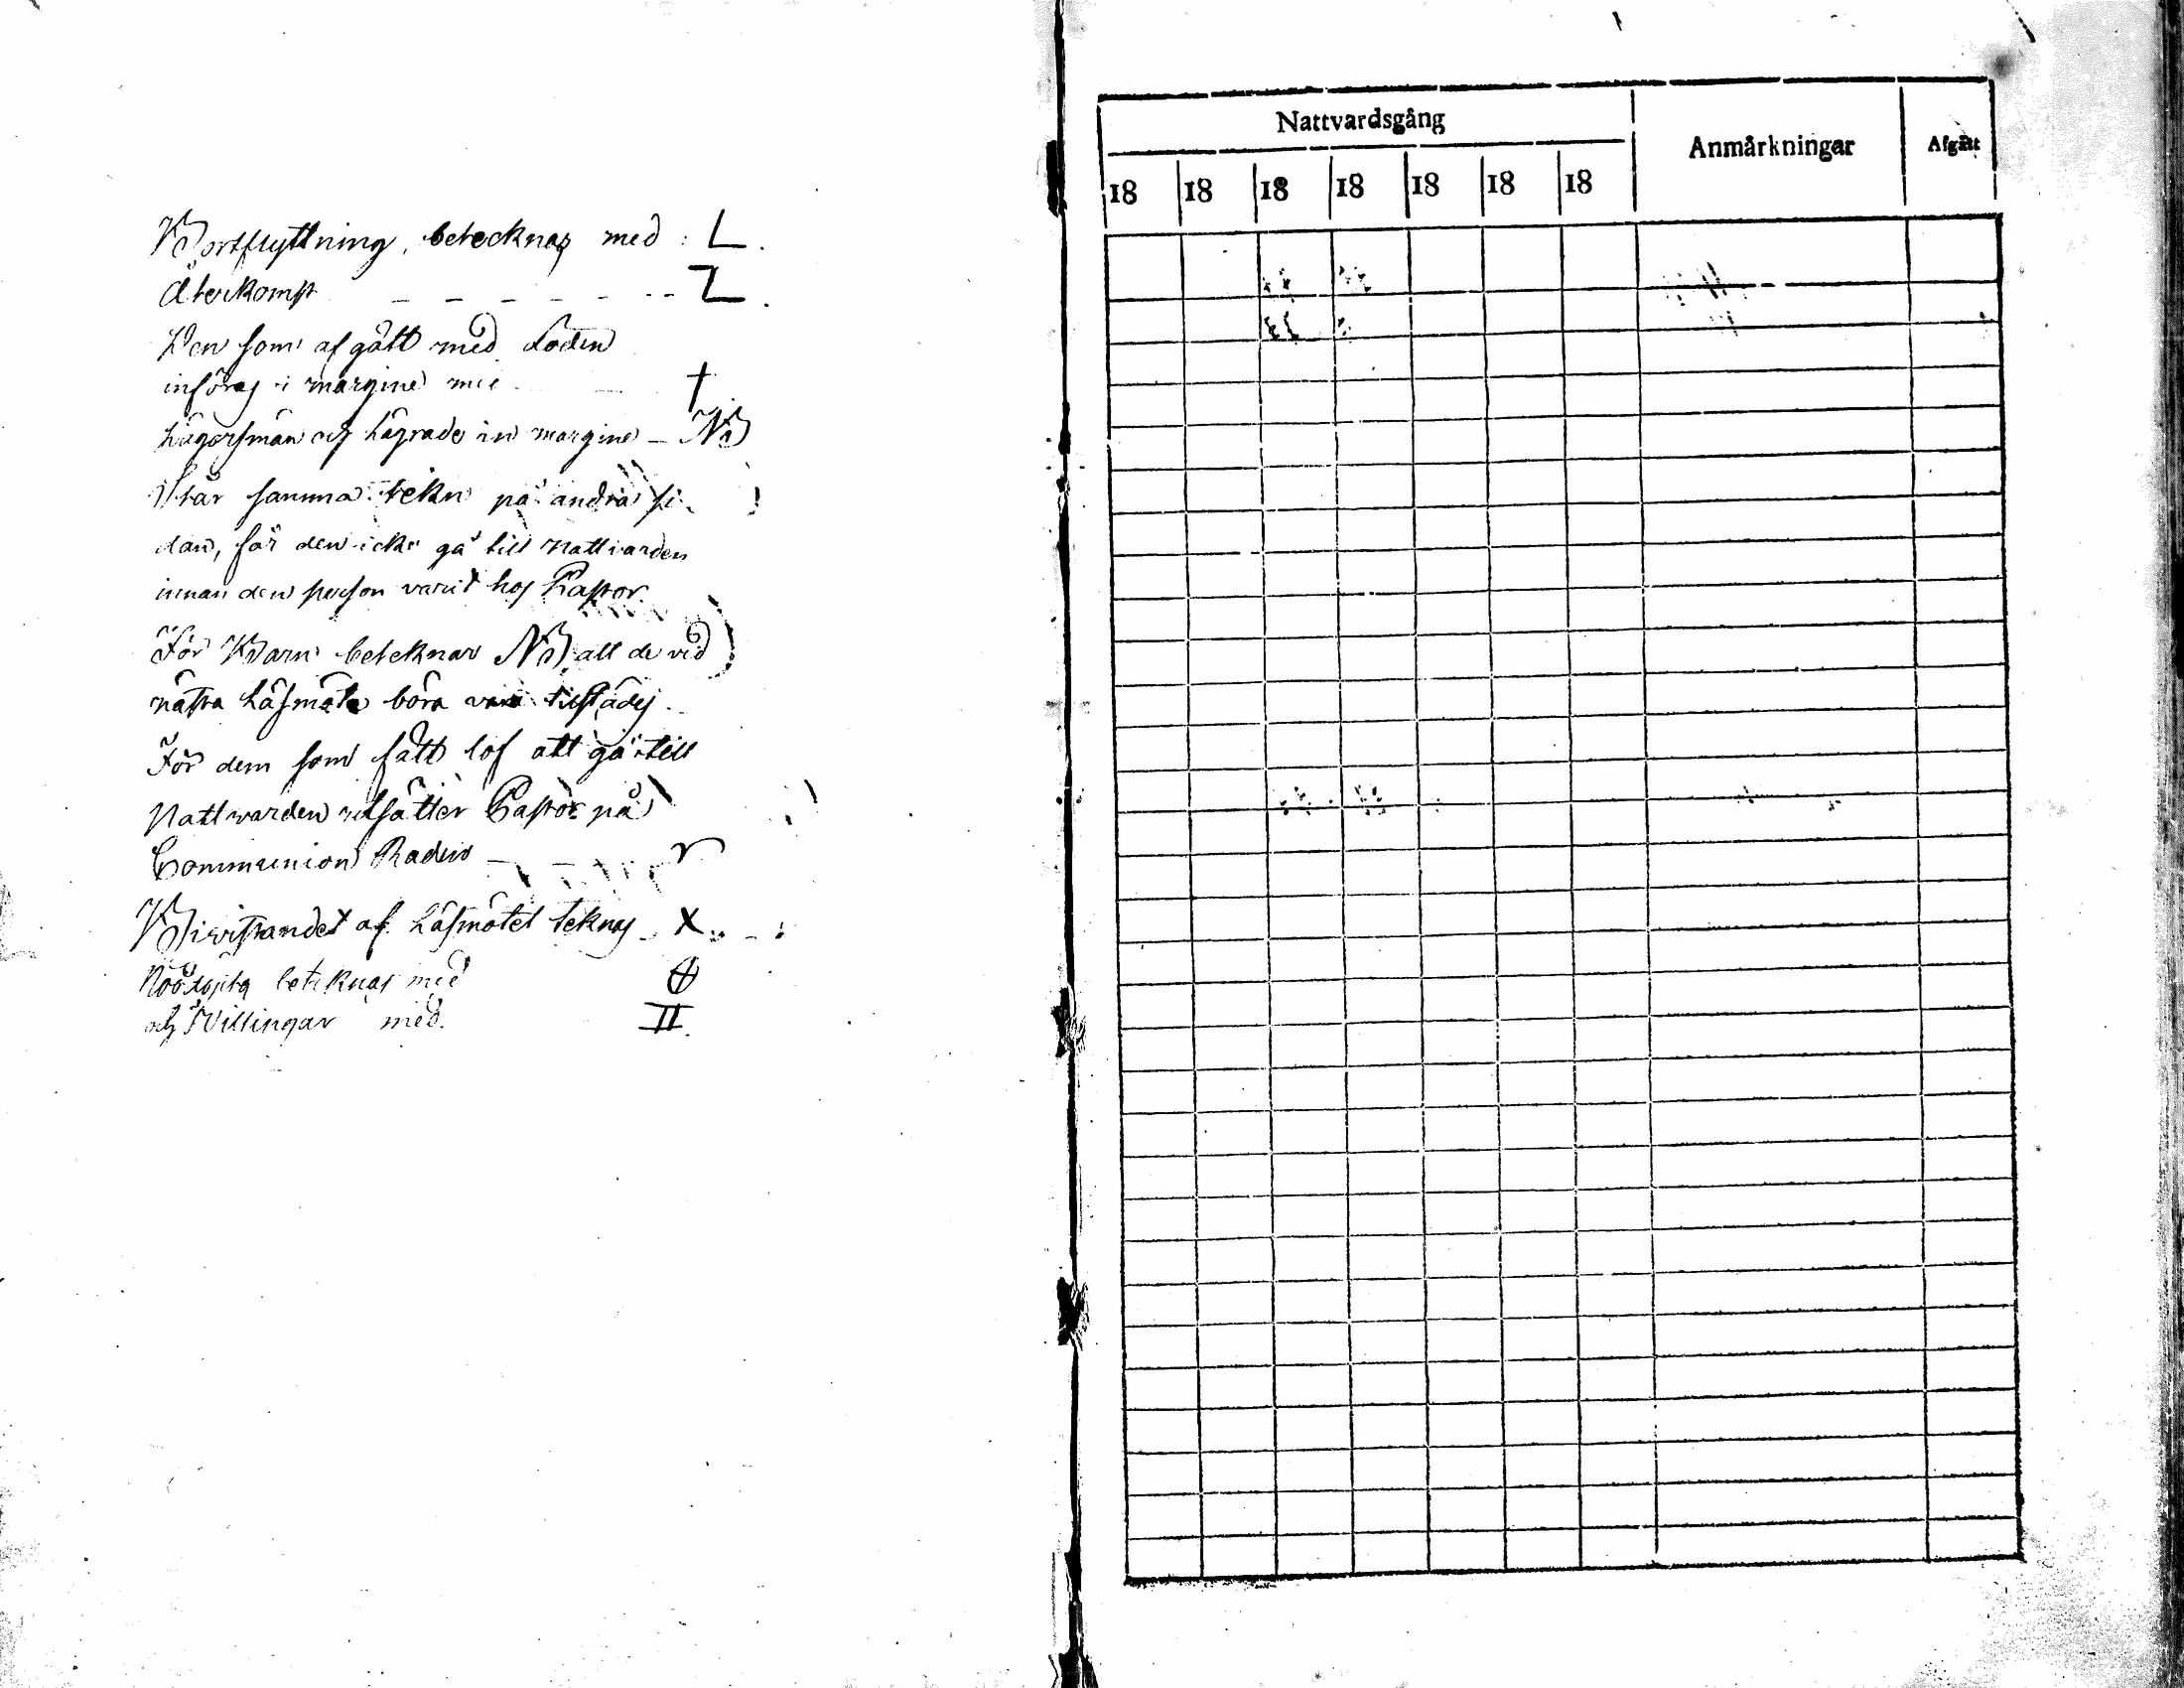 Bortflyttning, betecknas med : L.
Återkomst - - - - - - - Z.
Den som afgått med döden
införas i margine med †
Lägersmän och Lägrade in margine - NB
Står samma tekn på andra si-
dan, får den icke gå till Nattvarden
innan den person varit hos Pastor.
För Barn beteknar NB, att de vid
nästa Läsmöte böra vara tillstädes.
För dem som fått lof att gå till
Nattwarden utsätter Pastor på
Communion Raden - - r
Bivistandet af Läsmötet teknas - X.
Nöddöpta beteknas med
och Tvillingar med. II.
Nattvardsgång
Anmärkningar
Afgått
18 18 18 18 18 18 18